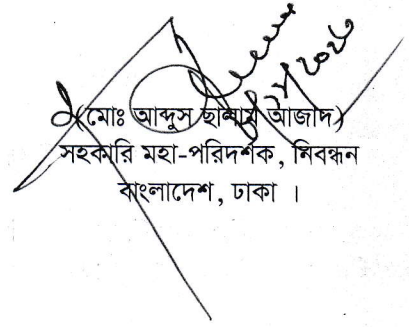 (মোঃ আব্দুস ছালাম আজাদ)
সহকারি মহা-পরিদর্শক, নিবন্ধন
বাংলাদেশ, ঢাকা ।